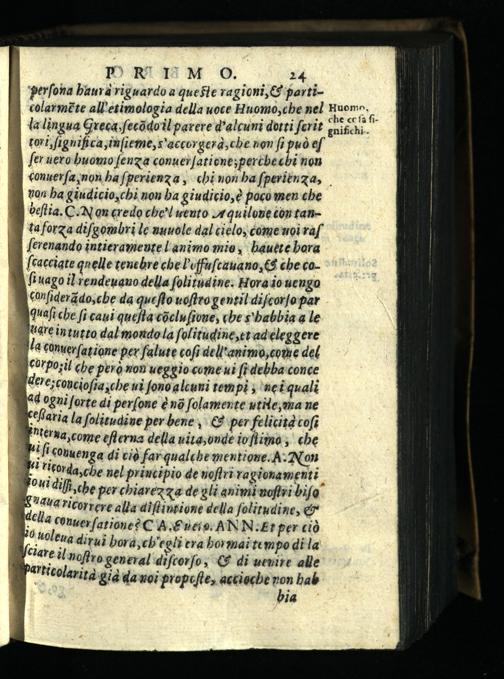 PRIMO. 24
persona haurà riguardo a queste ragioni,& parti-
colarmēte all'etimologia della uoce Huomo,che nel
la lingua Greca, secōdo il parere d'alcuni dotti scrit
tori,significa,insieme,s'accorgerà,che non si può es
ser uero huomo senza conuersatione;perche chi non
conuersa,non ha sperienza, chi non ha sperienza,
non ha giudicio,chi non ha giudicio,è poco men che
bestia. C. Non credo che'l uento Aquilone con tan-
ta forza disgombri le nuuole dal cielo, come uoi ras
serenando intieramente l'animo mio, hauete hora
scacciate quelle tenebre che l'offuscauano,& che co-
sì uago il rendeuano della solitudine. Hora io uengo
considerādo,che da questo uostro gentil discorso par
quasi che si caui questa cōclusione, che s'habbia a le
uare in tutto dal mondo la solitudine, et ad eleggere
la conuersatione per salute così dell'animo,come del
corpo;il che però non ueggio come ui si debba conce
dere;conciosia,che ui sono alcuni tempi, ne i quali
ad ogni sorte di persone è nō solamente utile,ma ne
cessaria la solitudine per bene, & per felicità così
interna,come esterna della uita,onde io stimo, che
ui si conuenga di ciò far qualche mentione. A. Non
ui ricorda,che nel principio de nostri ragionamenti
io ui dissi,che per chiarezza de gli animi nostri biso
gnaua ricorrere alla distintione della solitudine, &
della conuersatione? CA. E uero. ANN. Et per ciò
io uoleua dirui hora,ch'egli era hormai tempo di la
sciare il nostro general discorso, & di uenire alle
particolarità già da noi proposte, accioche non hab
bia
Huomo,
che cosa si-
gnifichi.